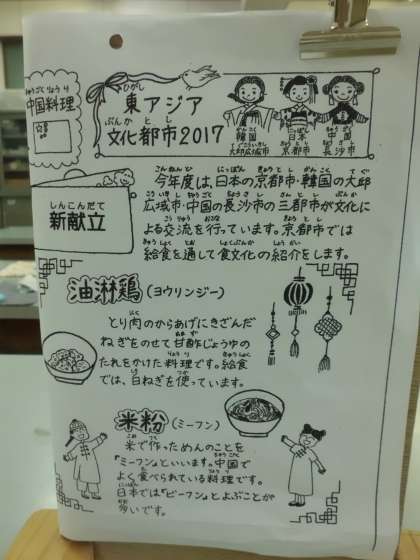 中国料理
ちゅうごくりょうり
東アジア
ひがし
文化都市2017
ぶんかとし
韓国
かんこく
大邱広域市
日本
にっぽん
京都市
きょうとし
中国
ちゅうごく
長沙市
新献立
しんこんだて
今年度は、日本の京都市・韓国の大邱
広域市・中国の長沙市の三都市が文化に
よる交流を行っています。京都市では
給食を通して食文化の紹介をします。
油淋鶏(ヨウリンジー)
とり肉のからあげにきざんだ
ねぎをのせて甘酢じょうゆの
たれをかけた料理です。給食
では、白ねぎを使っています。
米粉(ミーフン)
米で作っためんのことを
『ミーフン』といいます。中国で
よく食べられている料理です。
日本では『ビーフン』とよぶことが
多いです。